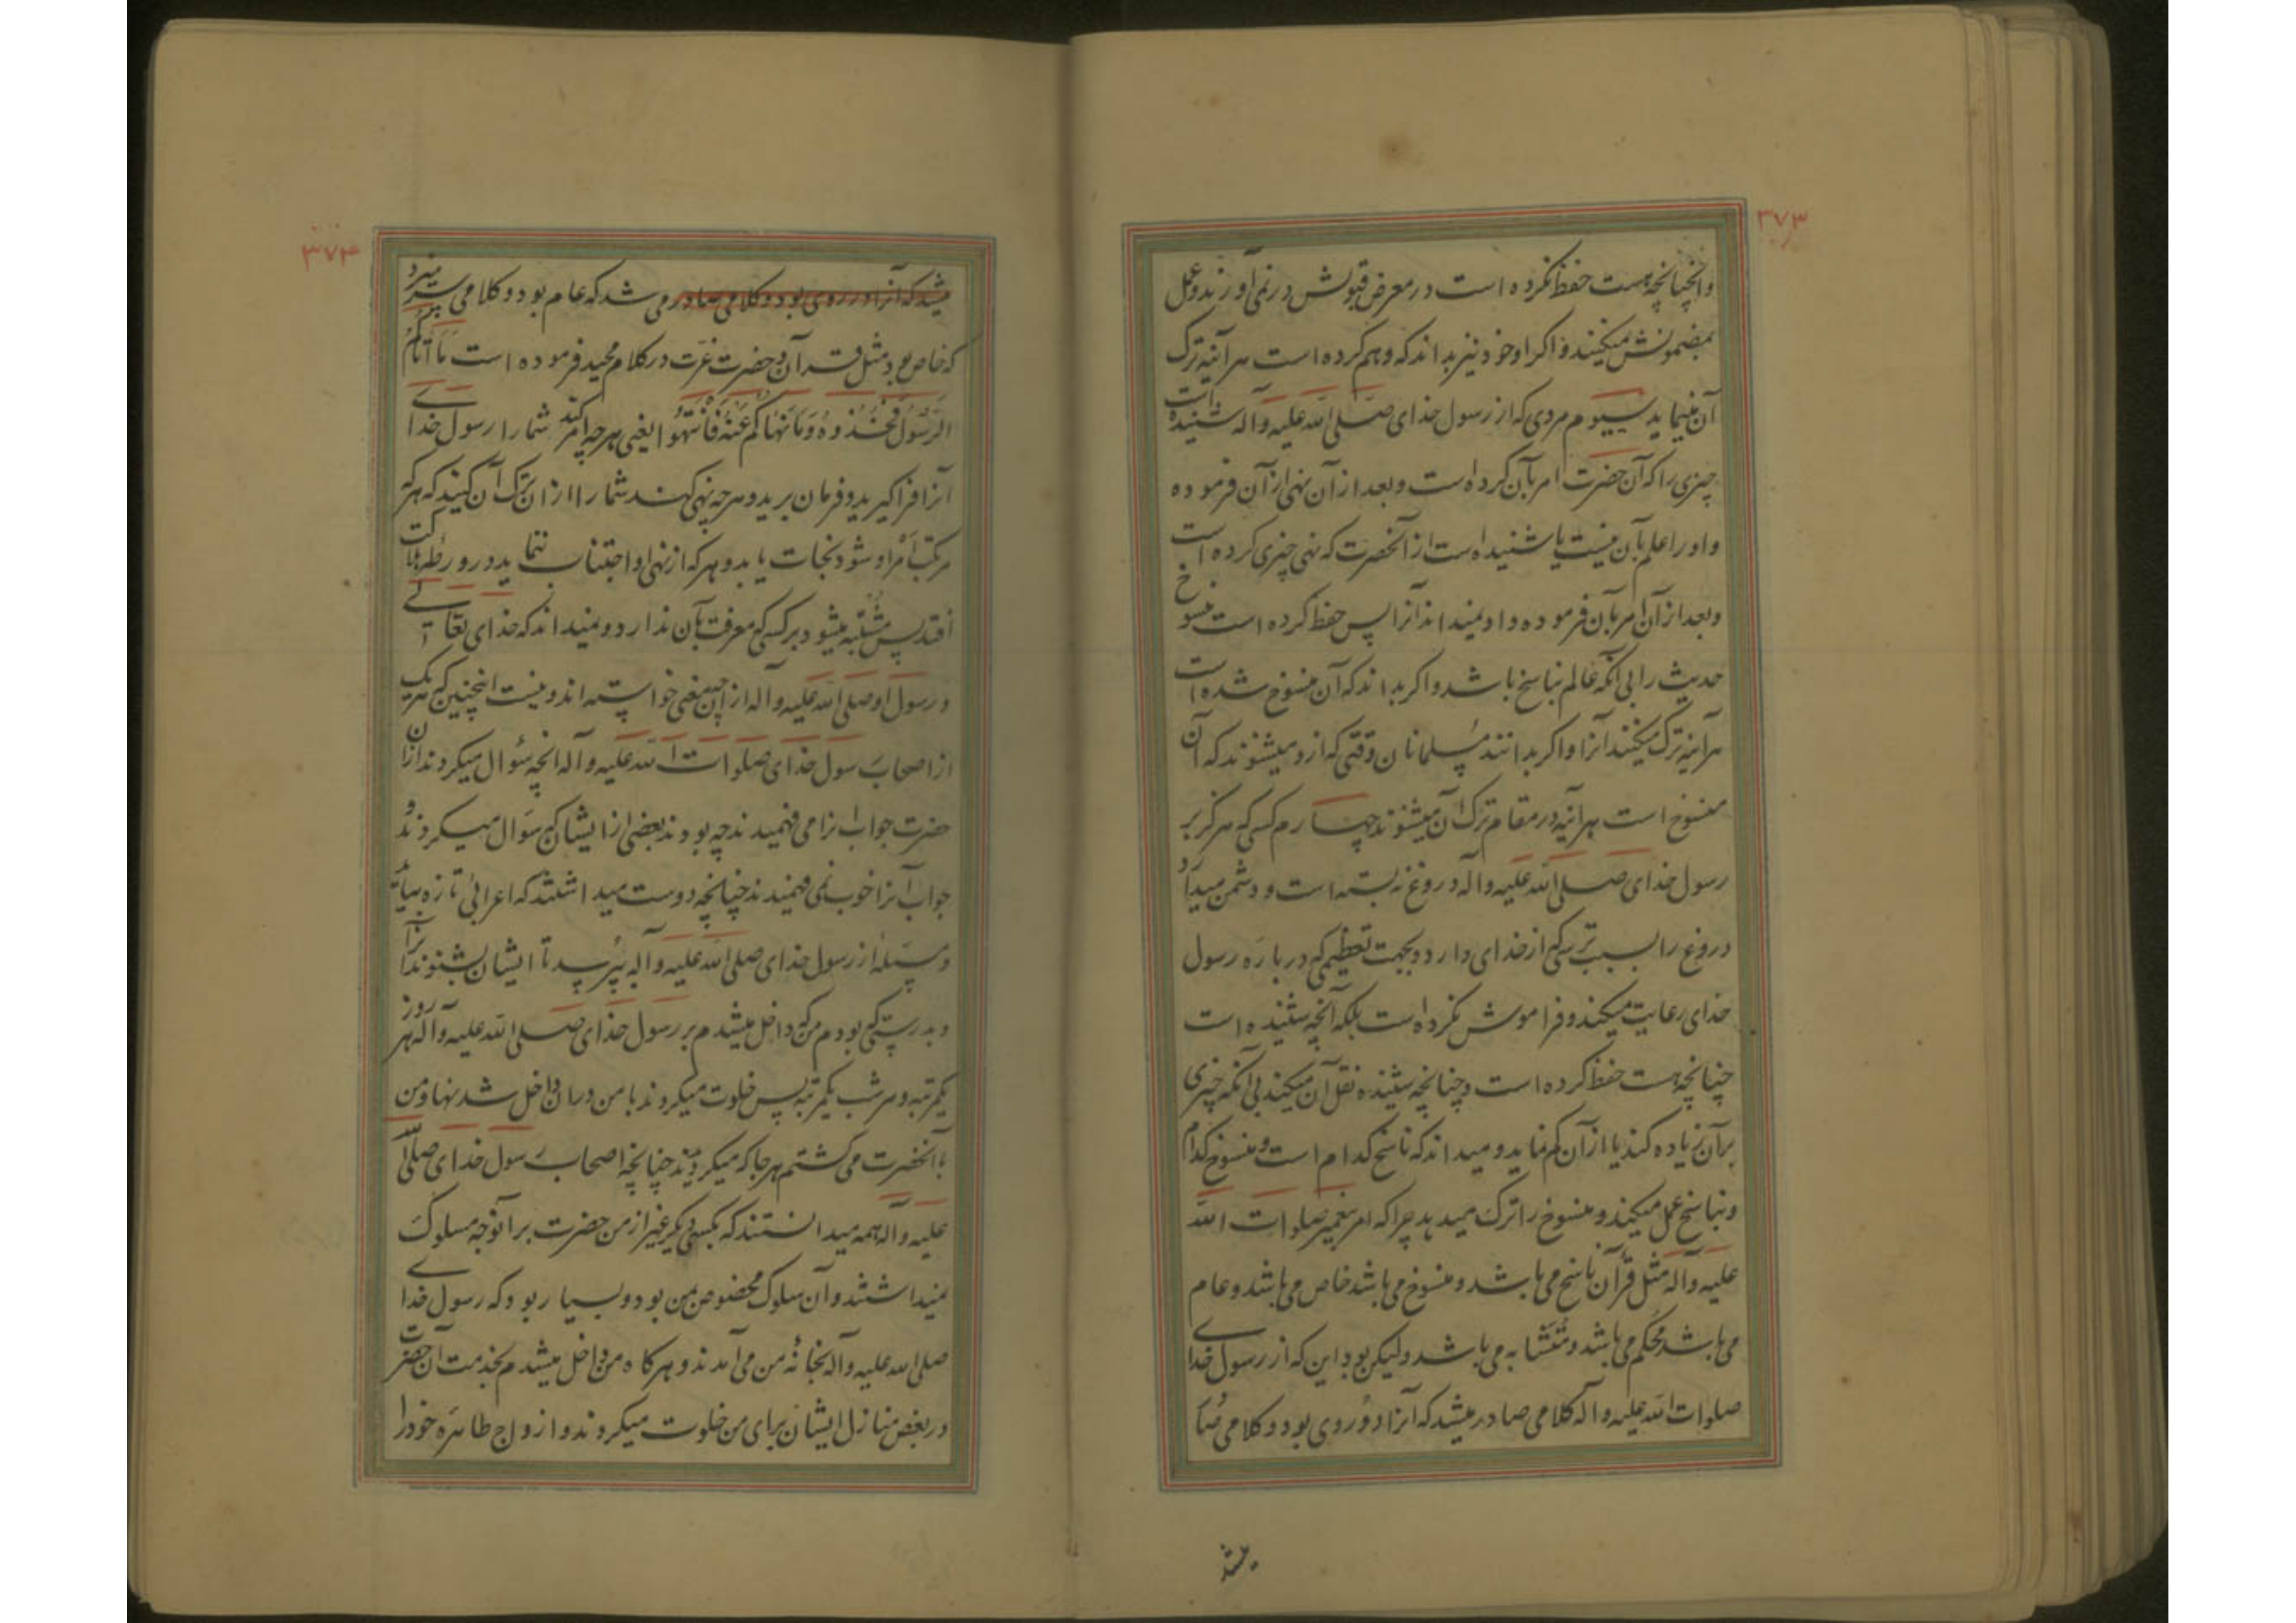 ۳۷۳
وانچنانچه هست حفظ نکرده است در معرض قبولش در نمی‌آورند و عمل
بمضمونش میکنند و اگر او خود نیز بداند که وهم کرده است هر آینه ترک
آن مینماید سیوم مردی که از رسول خدای صلی الله علیه وآله شنیده است
چیزی را که آن حضرت امر بآن کرده است و بعد از آن نهی از آن فرموده
و او را علم بآن نیست یا شنیده است از آنحضرت که نهی چیزی کرده است
و بعد از آن امر بآن فرموده و او نمیداند آنرا پس حفظ کرده است منسوخ
حدیث را بی آنکه عالم بناسخ باشد و اگر بداند که آن منسوخ شده است
هر آینه ترک میکند آنرا و اگر بدانند مسلمانان وقتی که ازو میشنوند که آن
منسوخ است هر آینه در مقام ترک آن میشوند چهارم کسی که هرگز بر
رسول خدای صلی الله علیه وآله دروغ نه بسته است و دشمن میدارد
دروغ را بسبب ترسی که از خدای دارد و بجهت تعظیمی که در باره رسول
خدای رعایت میکند و فراموش نکرده است بلکه آنچه شنیده است
چنانچه هست حفظ کرده است و چنانچه شنیده نقل آن میکند بی آنکه چیزی
بر آن زیاده کند یا از آن کم نماید و میداند که ناسخ کدام است و منسوخ کدام
و بناسخ عمل میکند و منسوخ را ترک میدهد چرا که امر پیغمبر صلوات الله
علیه وآله مثل قرآن ناسخ می باشد و منسوخ می باشد خاص می باشد و عام
می باشد محکم می باشد و متشابه می باشد ولیکن بود این که از رسول خدای
صلوات الله علیه وآله کلامی صادر میشد که آنرا دو روی بود و کلامی صا
میشد
۳۷۴
میشد که آنرا دو روی بود و کلامی صادر می شد که عام بود و کلامی سر میزد
که خاص بود مثل قرآن و حضرت عزت در کلام مجید فرموده است مَا آتَاكُمُ
الرَّسُولُ فَخُذُوهُ وَمَا نَهَاكُمْ عَنْهُ فَانْتَهُوا یعنی هر چه امر کند شما را رسول خدای
آنرا فرا گیرید و فرمان برید و هر چه نهی کند شما را از آن ترک آن کنید که هر که
مرتکب امر او شود نجات یابد و هر که از نهی او اجتناب ننماید در ورطه هلاکت
افتد پس مشتبه میشود بر کسی که معرفت بآن ندارد و نمیداند که خدای تعالی
و رسول او صلی الله علیه وآله از این چه معنی خواسته اند و نیست اینچنین که هر یک
از اصحاب رسول خدای صلوات الله علیه وآله آنچه سؤال میکردند از آن
حضرت جواب آنرا می فهمیدند چه بودند بعضی از ایشان که سؤال میکردند و
جواب آنرا خوب نمی فهمیدند چنانچه دوست میداشتند که اعرابی تازه بیاید
و مسئله از رسول خدای صلی الله علیه وآله بپرسد تا ایشان بشنوند آنرا
و بدرستی که بودم من که داخل میشدم بر رسول خدای صلی الله علیه وآله هر روز
یکمرتبه و هر شب یکمرتبه پس خلوت میکردند با من در آن داخل شدنها و من
با آنحضرت می گشتم هر جا که میگردیدند چنانچه اصحاب رسول خدای صلی الله
علیه وآله همه میدانستند که بکسی دیگر غیر از من حضرت بر آنوجه سلوک
نمیداشتند و آن سلوک مخصوص بمن بود و بسیار بود که رسول خدای
صلی الله علیه وآله بخانه من می آمدند و هر گاه من داخل میشدم بخدمت آن حضرت
در بعض منازل ایشان برای من خلوت میکردند و ازواج طاهره خود را